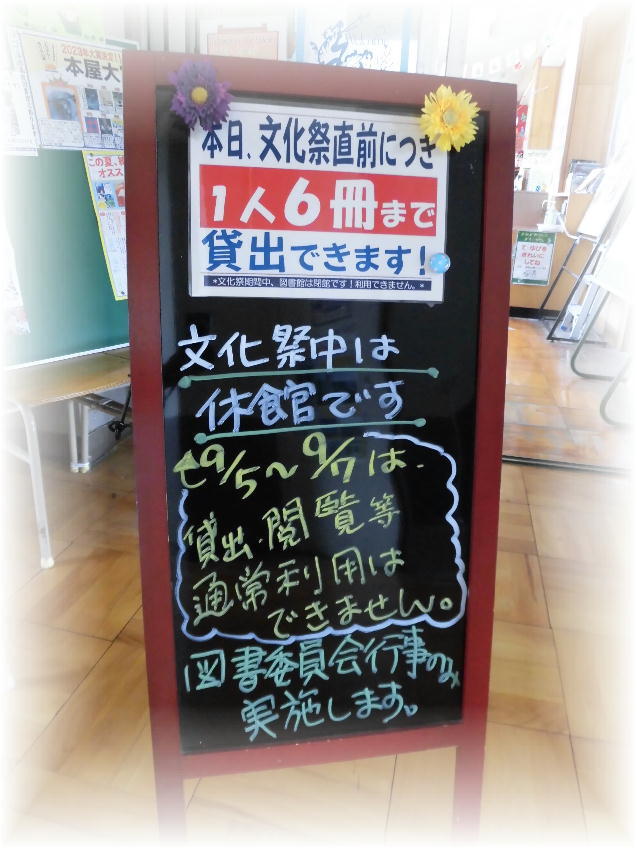 2023年大賞決定!!
本屋大
この夏、
オスス
本日、文化祭直前につき
1人6冊まで
貸出できます!
*文化祭期間中、図書館は閉館です!利用できません。*
文化祭中は
休館です
9/5～9/7は、
貸出・閲覧等
通常利用は
できません。
図書委員会行事のみ
実施します。
て・ゆびを
きれいに
してね